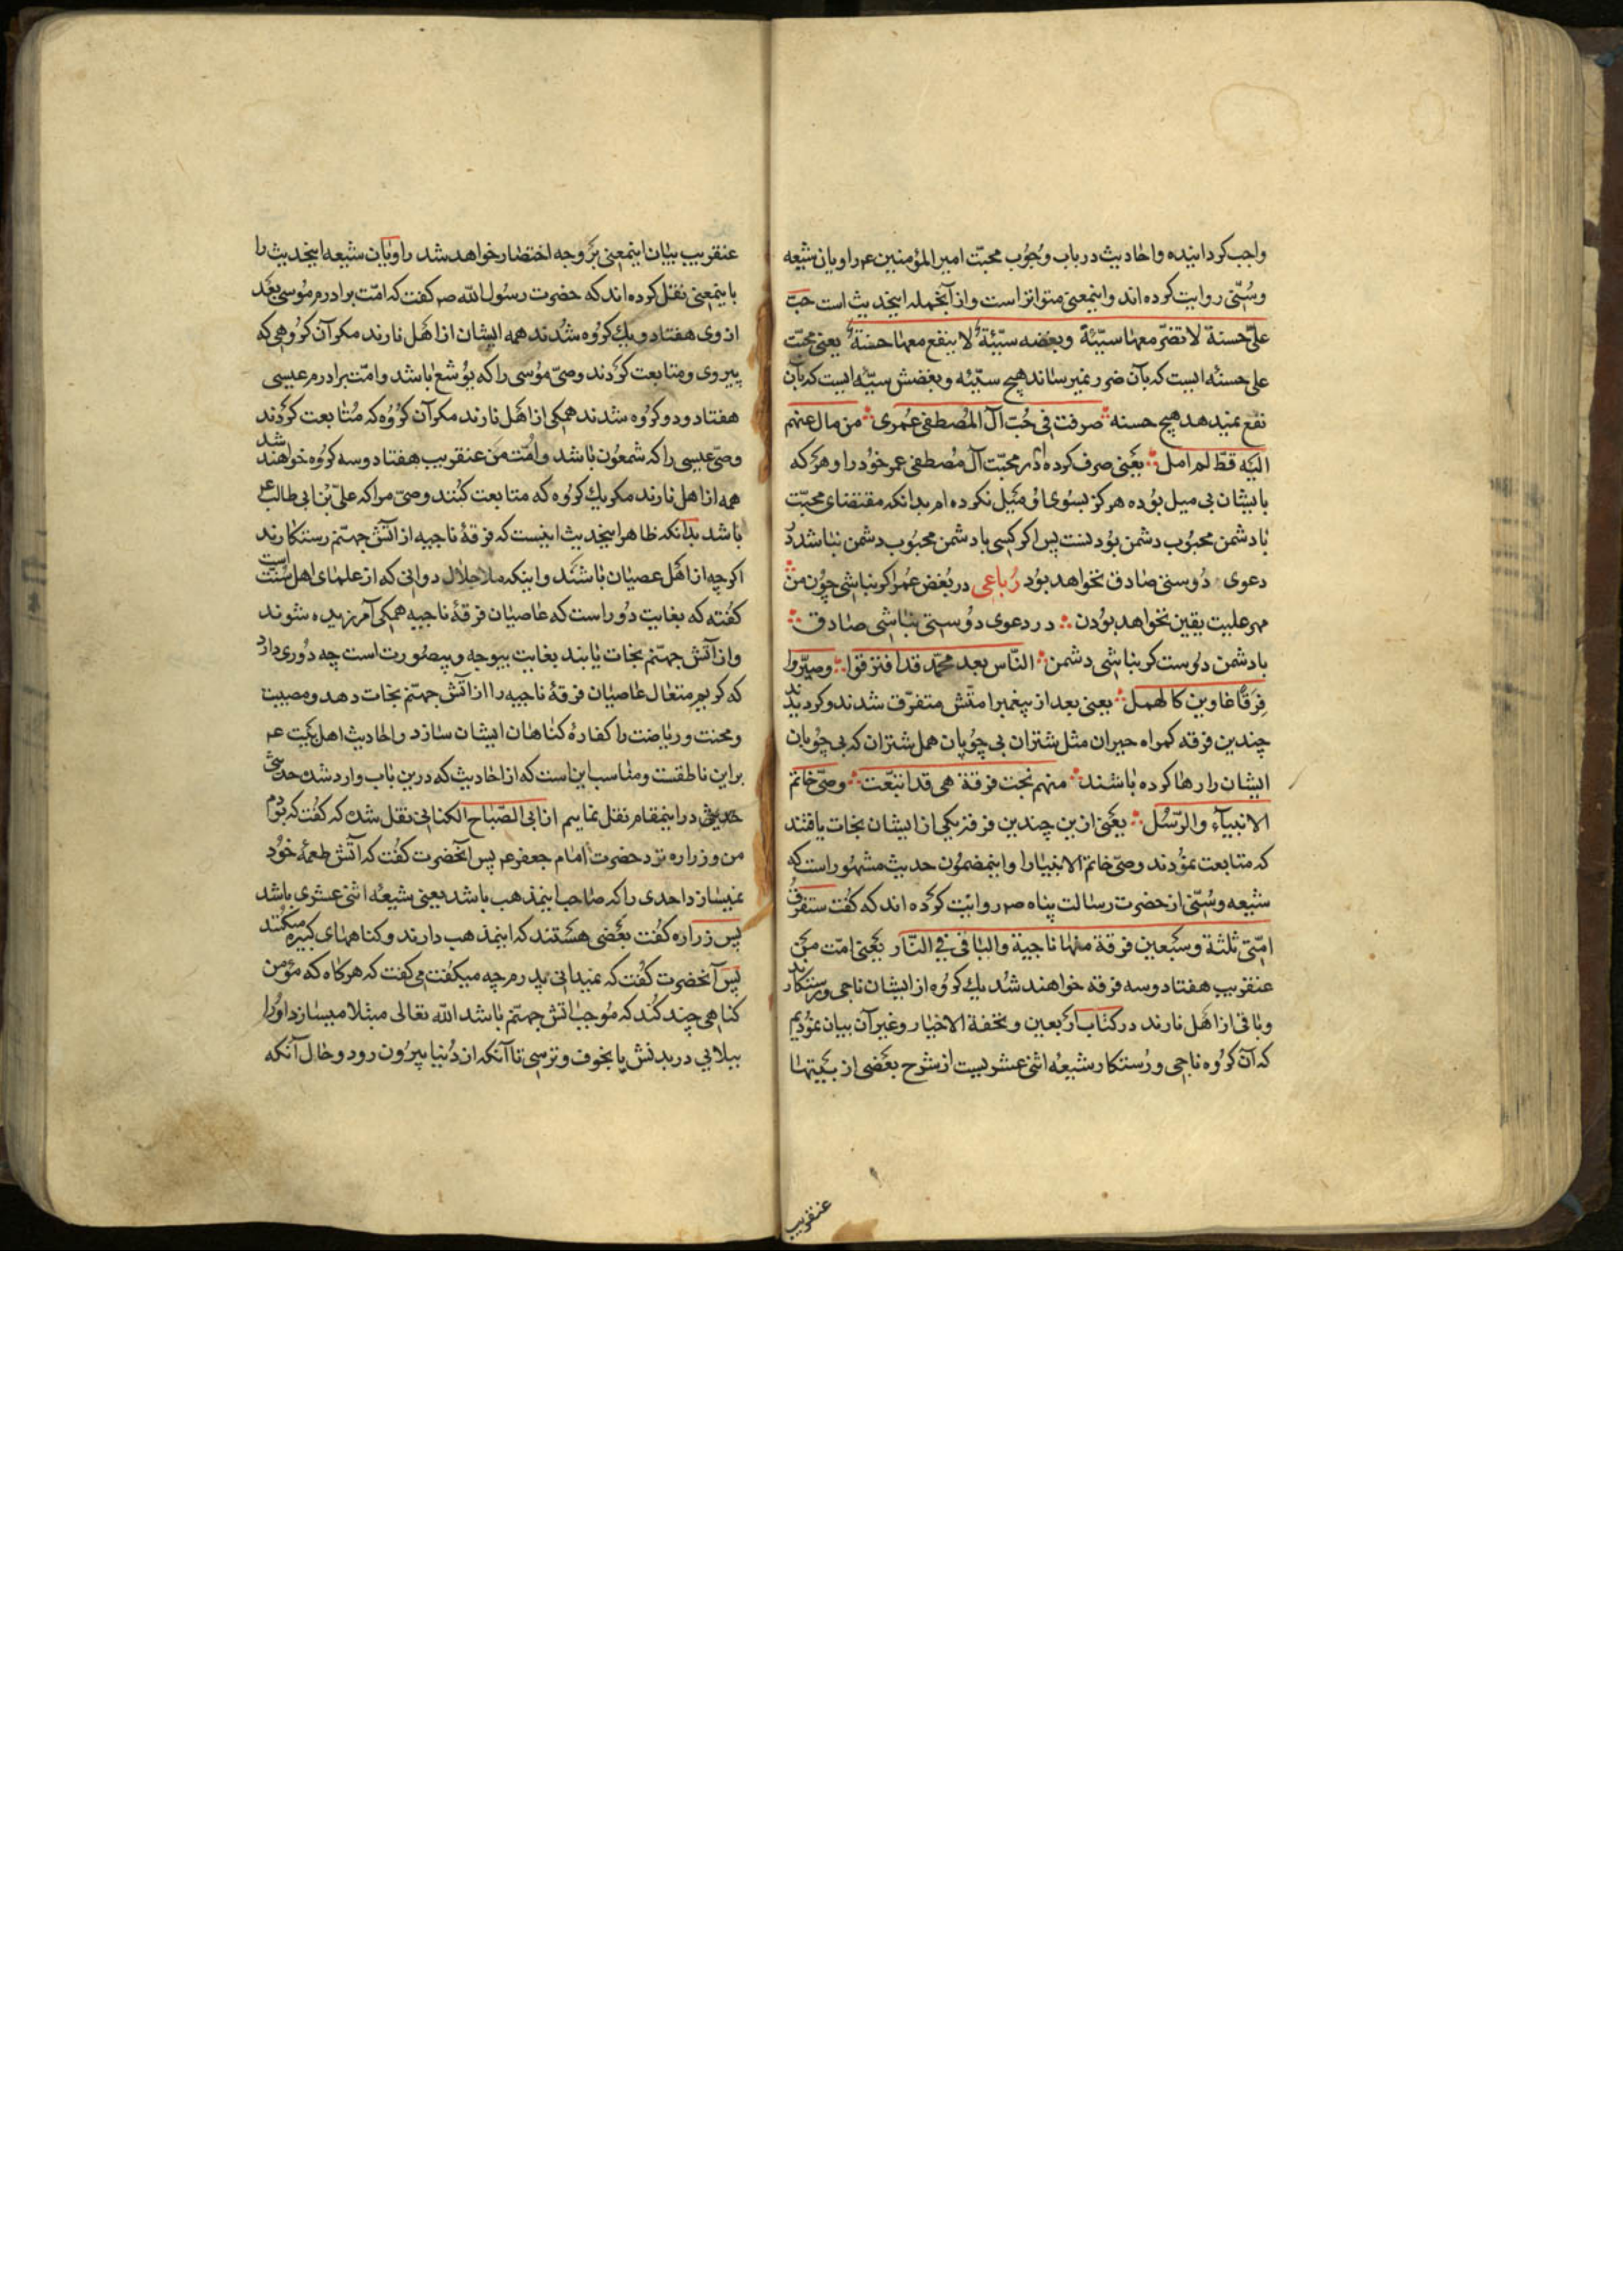 واجب کردانیده واحادیث در باب وجوب محبت امیر المؤمنین عم راویان شیعه
وسنّی روایت کرده اند واینمعنی متواتر است واز آنجمله اینحدیث است حبّ
علیّ حسنة لا تضرّ معها سیّئة وبغضه سیّئة لا ینفع معها حسنة یعنی محبّت
علی حسنهٔ ایست که بآن ضرر نمیرساند هیچ سیّئه وبغضش سیّئه ایست که بآن
نفع نمیدهد هیچ حسنه صرفت فی حبّ آل المصطفی عمری من مال عنهم
الیه قطّ لم امل یعنی صرف کرده ام در محبّت آل مصطفی عمر خود را و هر که
بایشان بی میل بوده هرکز بسوی او میل نکرده ام بدانکه مقتضای محبّت
با دشمن محبوب دشمن بودنست پس اکر کسی با دشمن محبوب دشمن نباشد در
دعوی دوستی صادق نخواهد بود رباعی در بغض عمر اکر نباشی چون من
مهر علیت یقین نخواهد بودن در دعوی دوستی نباشی صادق
با دشمن دوست کر نباشی دشمن النّاس بعد محمّد قد افترقوا وصیّروا
فِرَقًا غاوین کالهمل یعنی بعد از پیغمبر امتش متفرّق شدند و کردیدند
چندین فرقه کمراه حیران مثل شتران بی چوپان همل شتران که بی چوپان
ایشان را رها کرده باشند منهم نجت فرقة هی قد اتبّعت وصیّ خاتم
الانبیآء والرّسل یعنی ازین چندین فرقه یکی از ایشان نجات یافتند
که متابعت نمودند وصیّ خاتم الانبیا را واینمضمون حدیث مشهور است که
شیعه وسنّی از حضرت رسالت پناه صم روایت کرده اند که کفت ستفرق
امّتی ثلثة وسبعین فرقة منها ناجیة والباقی فی النّار یعنی امّت من
عنقریب هفتاد وسه فرقه خواهند شد یک کروه از ایشان ناجی ورستکارند
وباقی از اهل نارند در کتاب اربعین وتحفة الاخیار وغیر آن بیان نمودیم
که آن کروه ناجی ورستکار شیعهٔ اثنی عشریست از شرح بعضی از بیتها
عنقریب
عنقریب بیان اینمعنی بر وجه اختصار خواهد شد راویان شیعه اینحدیث را
باینمعنی نقل کرده اند که حضرت رسول الله صم کفت که امّت برادرم موسی بعد
از وی هفتاد ویک کروه شدند همه ایشان از اهل نارند مکر آن کروهی که
پیروی ومتابعت کردند وصیّ موسی را که یوشع باشد وامّت برادرم عیسی
هفتاد ودو کروه شدند همکی از اهل نارند مکر آن کروه که متابعت کردند
وصیّ عیسی را که شمعون باشد وامّت من عنقریب هفتاد وسه کروه خواهند شد
همه از اهل نارند مکر یک کروه که متابعت کنند وصیّ مرا که علیّ بن ابی طالب عم
باشد بدانکه ظاهر اینحدیث اینست که فرقهٔ ناجیه از آتش جهنّم رستکارند
اکرچه از اهل عصیان باشند واینکه ملا جلال دوانی که از علمای اهل سنّت است
کفته که بغایت دور است که عاصیان فرقهٔ ناجیه همکی آمرزیده شوند
واز آتش جهنّم نجات یابند بغایت بیوجه وبیصورت است چه دوری دارد
که کریم متعال عاصیان فرقهٔ ناجیه را از آتش جهنّم نجات دهد ومصیبت
ومحنت وریاضت را کفارهٔ کناهان ایشان سازد واحادیث اهل بیت عم
بر این ناطقست ومناسب این است که از احادیث که درین باب وارد شده حدیثی
درینمقام نقل نماییم از ابی الصّباح الکنانی نقل شده که کفت که بودم
من وزراره نزد حضرت امام جعفر عم پس آنحضرت کفت که آتش طعمهٔ خود
نمیسازد احدی را که صاحب اینمذهب باشد یعنی شیعهٔ اثنی عشری باشد
پس زراره کفت بعضی هستند که اینمذهب دارند وکناههای کبیره میکنند
پس آنحضرت کفت که نمیدانی پدرم چه میکفت می کفت که هرکاه که مؤمن
کناهی چند کند که موجب آتش جهنّم باشد الله تعالی مبتلا میسازد او را
ببلایی در بدنش یا بخوف وترسی تا آنکه از دنیا بیرون رود وحال آنکه